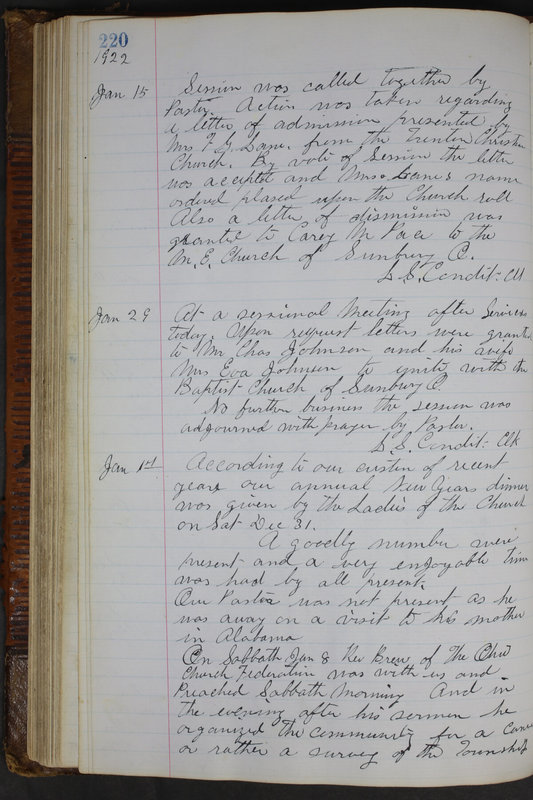 220
1922
Jan 15 Session was called together by
Pastor. Action was taken regarding
a letter of admission presented by
Mrs F G Lane. from the Trenton Christian
Church. By vote of Session the letter
was accepted and Mrs. Lane's name
ordered placed upon the Church roll
Also a letter of dismission was
granted to Carey M Pace to the
M. E. Church of Sunbury O.
S. S. Condit. Clk
Jan 29 At a sessional Meeting after Services
today. Upon request letters were granted
to Mr Chas Johnson and his wife
Mrs Eva Johnson to unite with the
Baptist Church of Sunbury O
No further business the session was
adjourned with prayer by Pastor.
S. S. Condit. Clk
Jan 1st According to our custom of recent
years our annual New Years dinner
was given by the Ladies of the Church
on Sat Dec 31.
A goodly number were
present and a very enjoyable time
was had by all present.
Our Pastor was not present as he
was away on a visit to his mother
in Alabama
On Sabbath Jan 8 Rev Brew of the Ohio
Church Federation was with us and
Preached Sabbath Morning And in
the evening after his sermon he
organized the community for a
or rather a survey of the Township